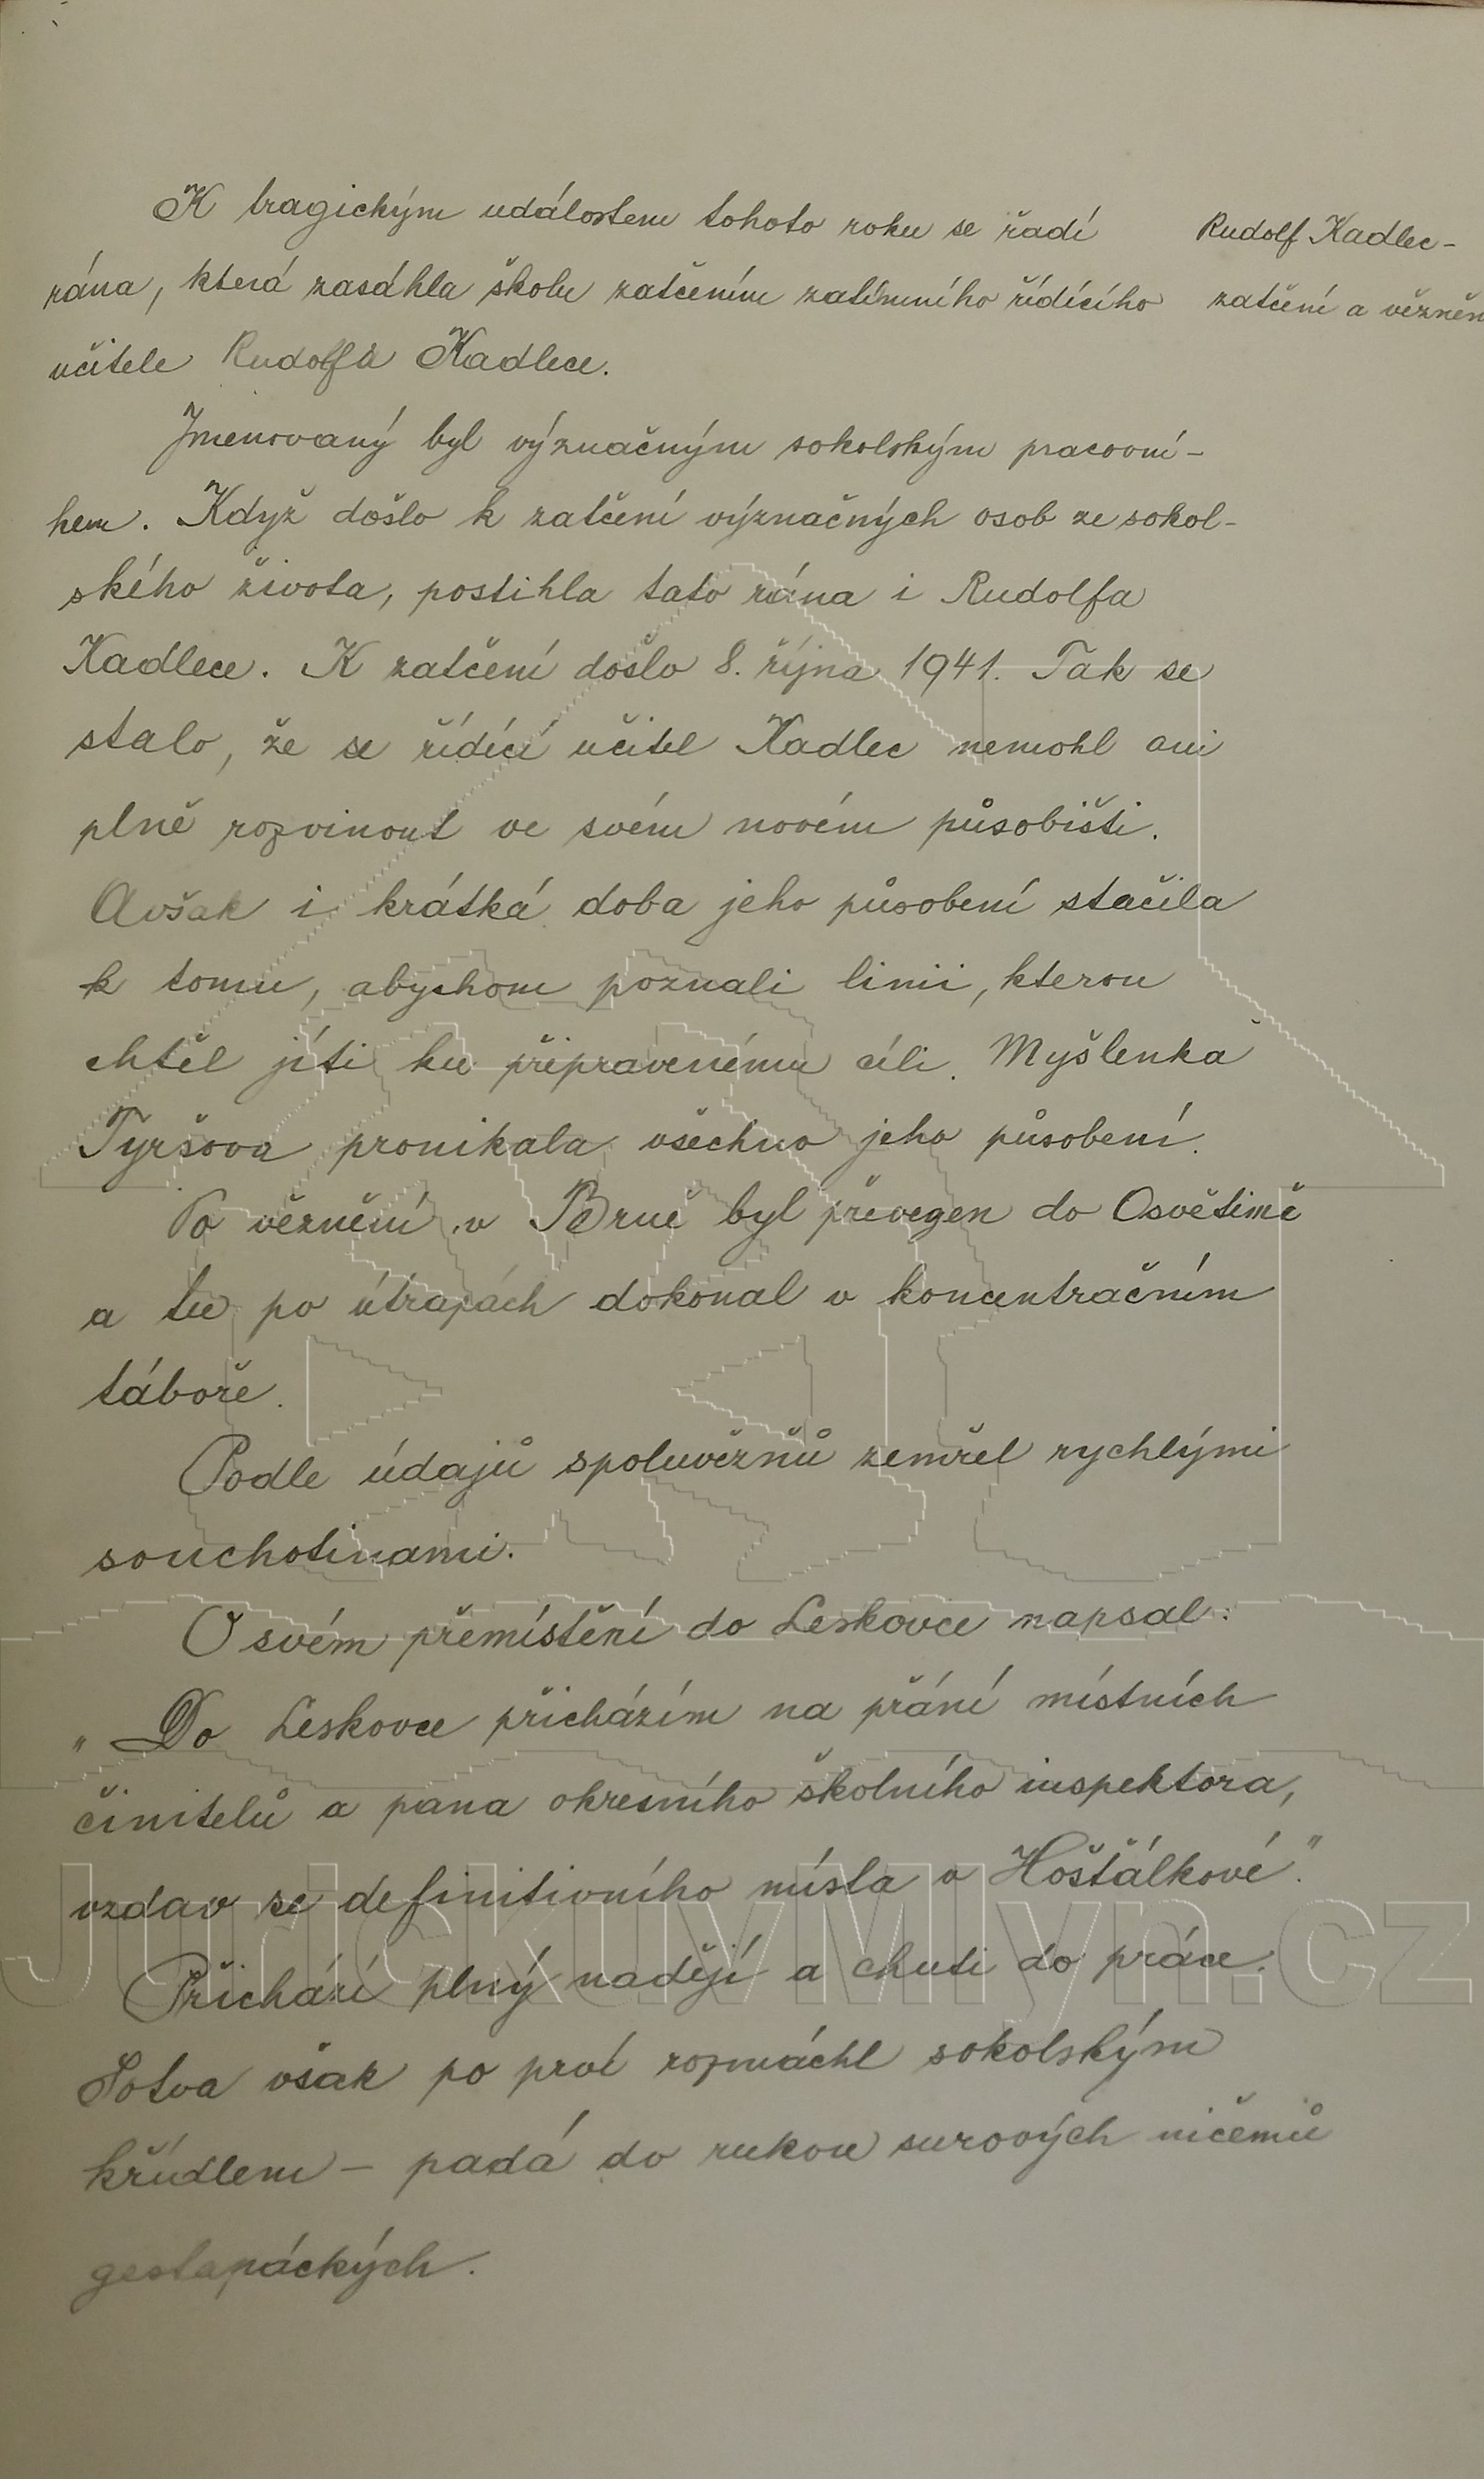 K tragickým událostem tohoto roku se řadí
Rudolf Kadlec -
rána, která zasáhla školu zatčením zatímního řídícího
zatčení a vězněn
učitele Rudolfa Kadlece.
Jmenovaný byl význačným sokolským pracovní-
kem. Když došlo k zatčení význačných osob ze sokol-
ského života, postihla tato rána i Rudolfa
Kadlece. K zatčení došlo 8. října 1941. Tak se
stalo, že se řídící učitel Kadlec nemohl ani
plně rozvinout ve svém novém působišti.
Avšak i krátká doba jeho působení stačila
k tomu, abychom poznali linii, kterou
chtěl jíti ku připravenému cíli. Myšlenka
Tyršova pronikala všechno jeho působení.
Po věznění v Brně byl převezen do Osvětimě
a tu po útrapách dokonal v koncentračním
táboře.
Podle údajů spoluvězňů zemřel rychlými
souchotinami.
O svém přemístění do Leskovce napsal:
„Do Leskovce přicházím na přání místních
činitelů a pana okresního školního inspektora,
vzdav se definitivního místa v Hošťálkové."
Přichází plný nadějí a chuti do práce.
Sotva však po prví rozmáchl sokolským
křídlem – padá do rukou surových ničemů
gestapáckých.
JurickuvMlyn.cz